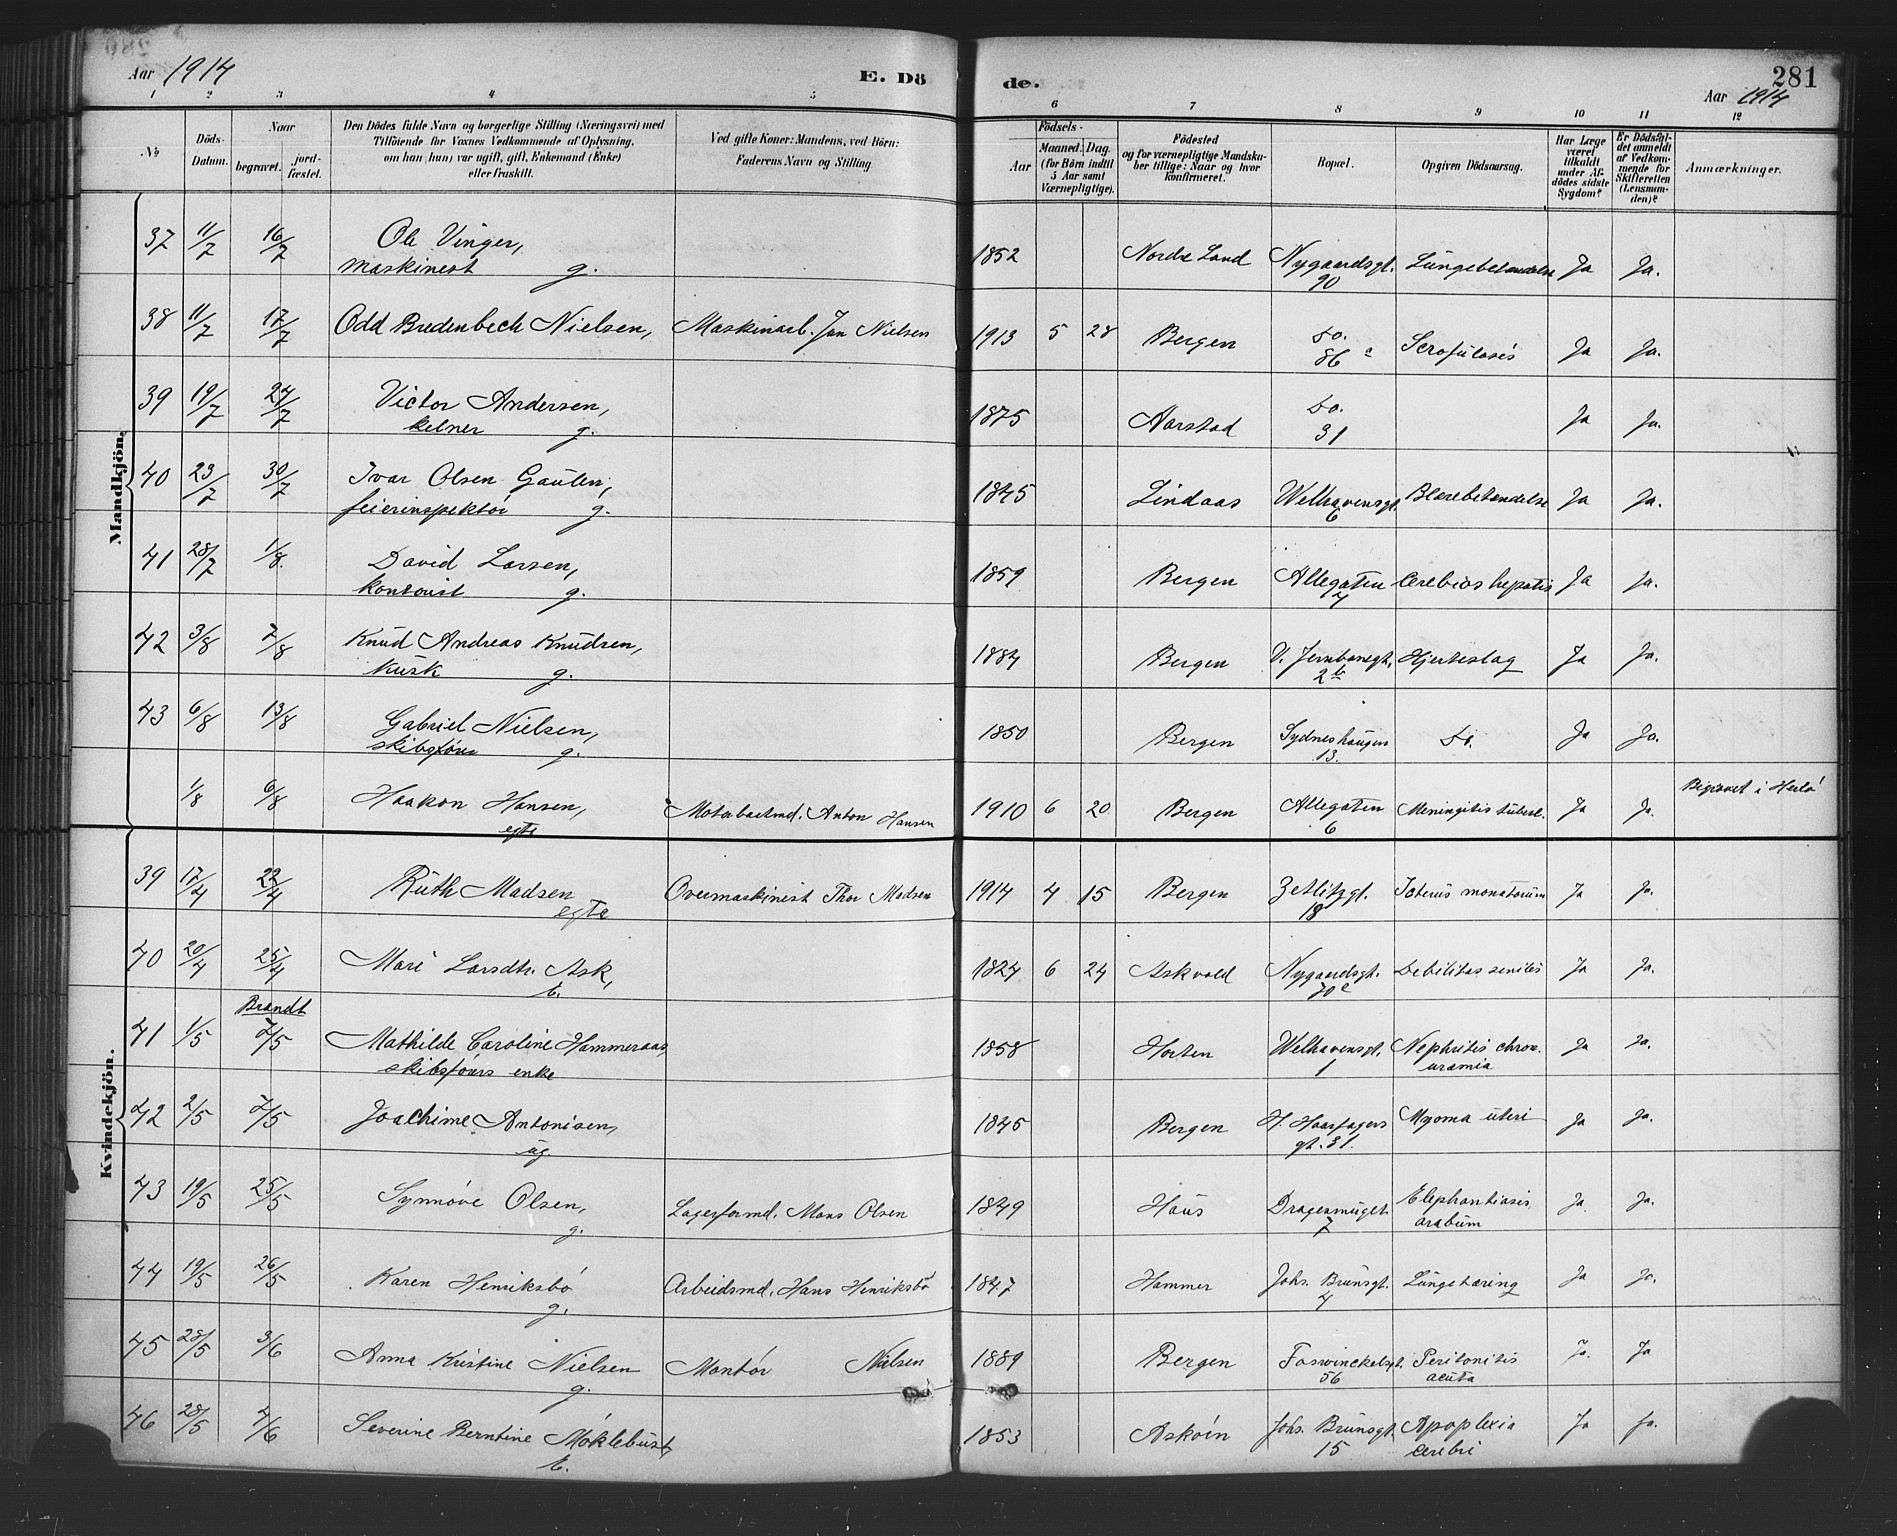 Aar 1914 E. Dö de. 281
Aar 1914
1 2 3 4 5 6 7 8 9 10 11 12
No
Döds-Datum.
Naar
begravet.
jord-fæstet.
Den Dödes fulde Navn og borgerlige Stilling (Næringsvei) med
Tilföiende for Voxnes Vedkommende af Oplysning,
om han (hun) var ugift, gift, Enkemand (Enke)
eller fraskilt.
Ved gifte Koner: Mandens, ved Börn:
Faderens Navn og Stilling.
Födsels-
Aar
Maaned. Dag.
(for Börn indtil
5 Aar samt
Værnepligtige).
Födested
og for værnepligtige Mandska-
ber tillige: Naar og hvor
konfirmeret.
Bopæl.
Opgiven Dödsaarsag.
Har Læge
været
tilkaldt
under Af-
dödes sidste
Sygdom?
Er Dödsfal-
det anmeldt
af Vedkom-
mende for
Skifteretten
(Lensman-
den)?
Anmærkninger.
Mandkjön.
37 11/7 16/7 Ole Vinger, 1852 Nordre Land Nygaardsgt. Lungebetændelse Ja Ja.
maskinest g. 90
38 11/7 17/7 Odd Bredenbech Nielsen, Maskinarb. Jan Nielsen 1913 5 28 Bergen Do. Scrofulosis Ja Ja.
86 c
39 19/7 24/7 Victor Andersen, 1875 Aarstad Do. Ja Ja.
kelner g. 31
40 23/7 30/7 Ivar Olsen Gaulen, 1845 Lindaas Welhavensgt. Blærebetændelse Ja Ja.
feierinspektör g. 6
41 28/7 1/8. David Larsen, 1859 Bergen Allegaten hepatis Ja Ja.
kontorist g. 7
42 3/8 7/8 Knud Andreas Knudsen, 1884 Bergen V. Jernbanegt. Hjerteslag Ja Ja.
Kusk g. 2 b
43 6/8 13/8 Gabriel Nielsen, 1850 Bergen Sydneshaugen Do. Ja Ja.
skibsförer g. 13.
1/8 6/8 Haakon Hansen, Motorbaatmd. Anton Hansen 1910 6 20 Bergen Allegaten Meningitis tuberk. Ja Ja. Begravet i Herlö
egte 6
Kvindekjön.
39 17/4 22/4 Ruth Madsen Overmaskinist Thor Madsen 1914 4 15 Bergen Zetlitzgt. Icterus Ja Ja.
egte 18
40 20/4 25/4 Mari Larsdtr. Ask, 1824 6 24 Askvold Nygaardsgt. Debilitas senilis Ja Ja.
E. 70 c
Brændt
41 1/5 7/5 Mathilde Caroline Hammeraas, 1858 Horten Welhavensgt. Nephritis chron. Ja Ja.
skibsförers enke 1 uræmia
42 2/5 7/5 Joachime Antonisen, 1845 Bergen H. Haarfagers Myoma uteri Ja Ja.
ug. gt. 31.
43 19/5 25/5 Synnöve Olsen, Lagerformd. Mons Olsen 1849 Haus Dragesmuget Elephantiasis Ja. Ja.
g. 7 arabum
44 19/5 26/5 Karen Henriksbö Arbeidsmd. Hans Henriksbö 1847 Hammer Johs. Brunsgt. Lungetæring Ja Ja.
g. 4
45 28/5 3/6 Anna Kristine Nielsen Montör Nielsen 1889 Bergen Foswinckelsgt. Peritonitis Ja. Ja
g. 56 acuta
46 28/5 4/6 Severine Berntine Möklebust, 1853 Asköen Johs. Brunsgt. Apoplexia Ja Ja.
E. 15 cerebri